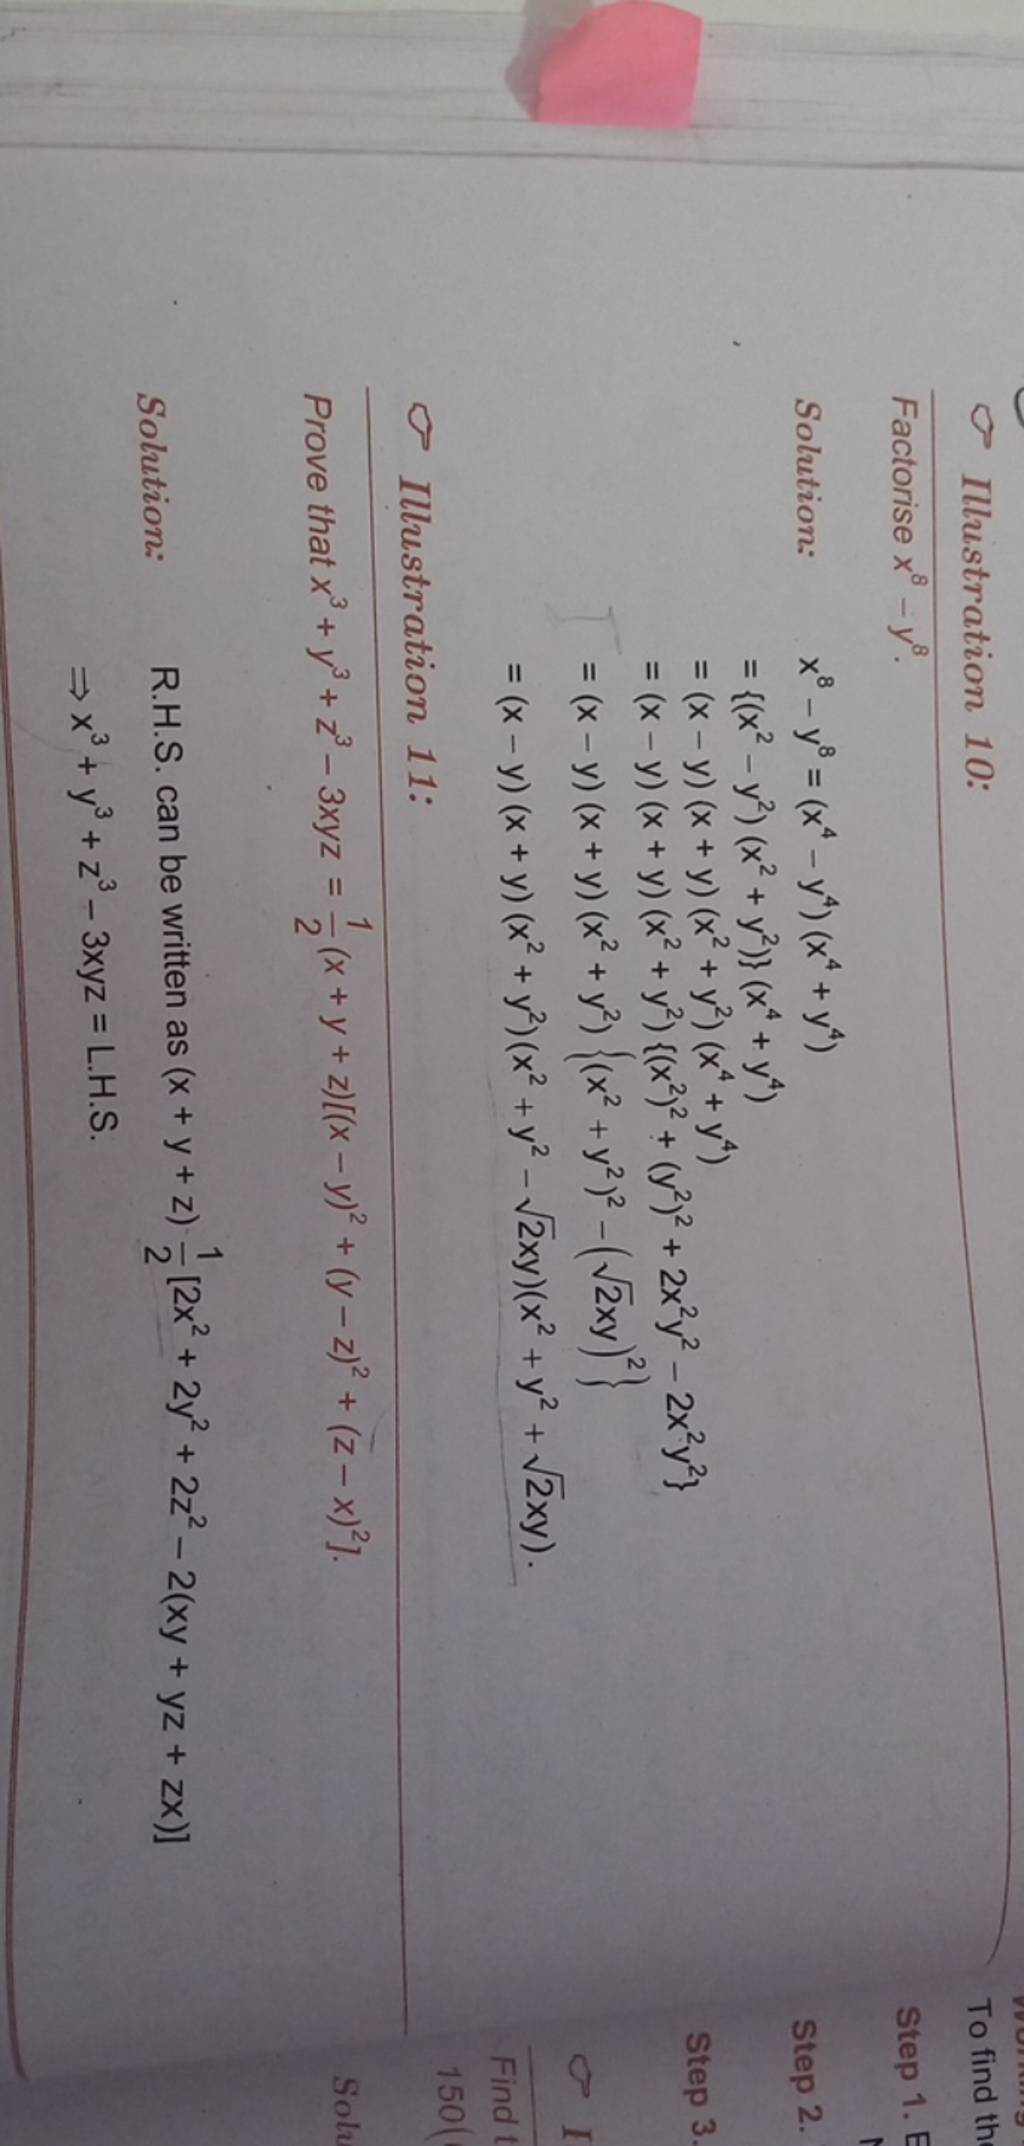 ☞ Illustration 10:
Factorise x⁸ – y⁸.
Solution: x⁸ – y⁸ = (x⁴ – y⁴) (x⁴ + y⁴)
= {(x² – y²) (x² + y²)} (x⁴ + y⁴)
= (x – y) (x + y) (x² + y²) (x⁴ + y⁴)
= (x – y) (x + y) (x² + y²) {(x²)² + (y²)² + 2x²y² – 2x²y²}
= (x – y) (x + y) (x² + y²) {(x² + y²)² – (√2xy)²}
= (x – y) (x + y) (x² + y²)(x² + y² – √2xy)(x² + y² + √2xy).
☞ Illustration 11:
Prove that x³ + y³ + z³ – 3xyz = 1/2 (x + y + z)[(x – y)² + (y – z)² + (z – x)²].
Solution: R.H.S. can be written as (x + y + z) 1/2 [2x² + 2y² + 2z² – 2(xy + yz + zx)]
⇒ x³ + y³ + z³ – 3xyz = L.H.S.
To find the
Step 1.
Step 2.
Step 3.
☞ I
Find t
150(
Solu